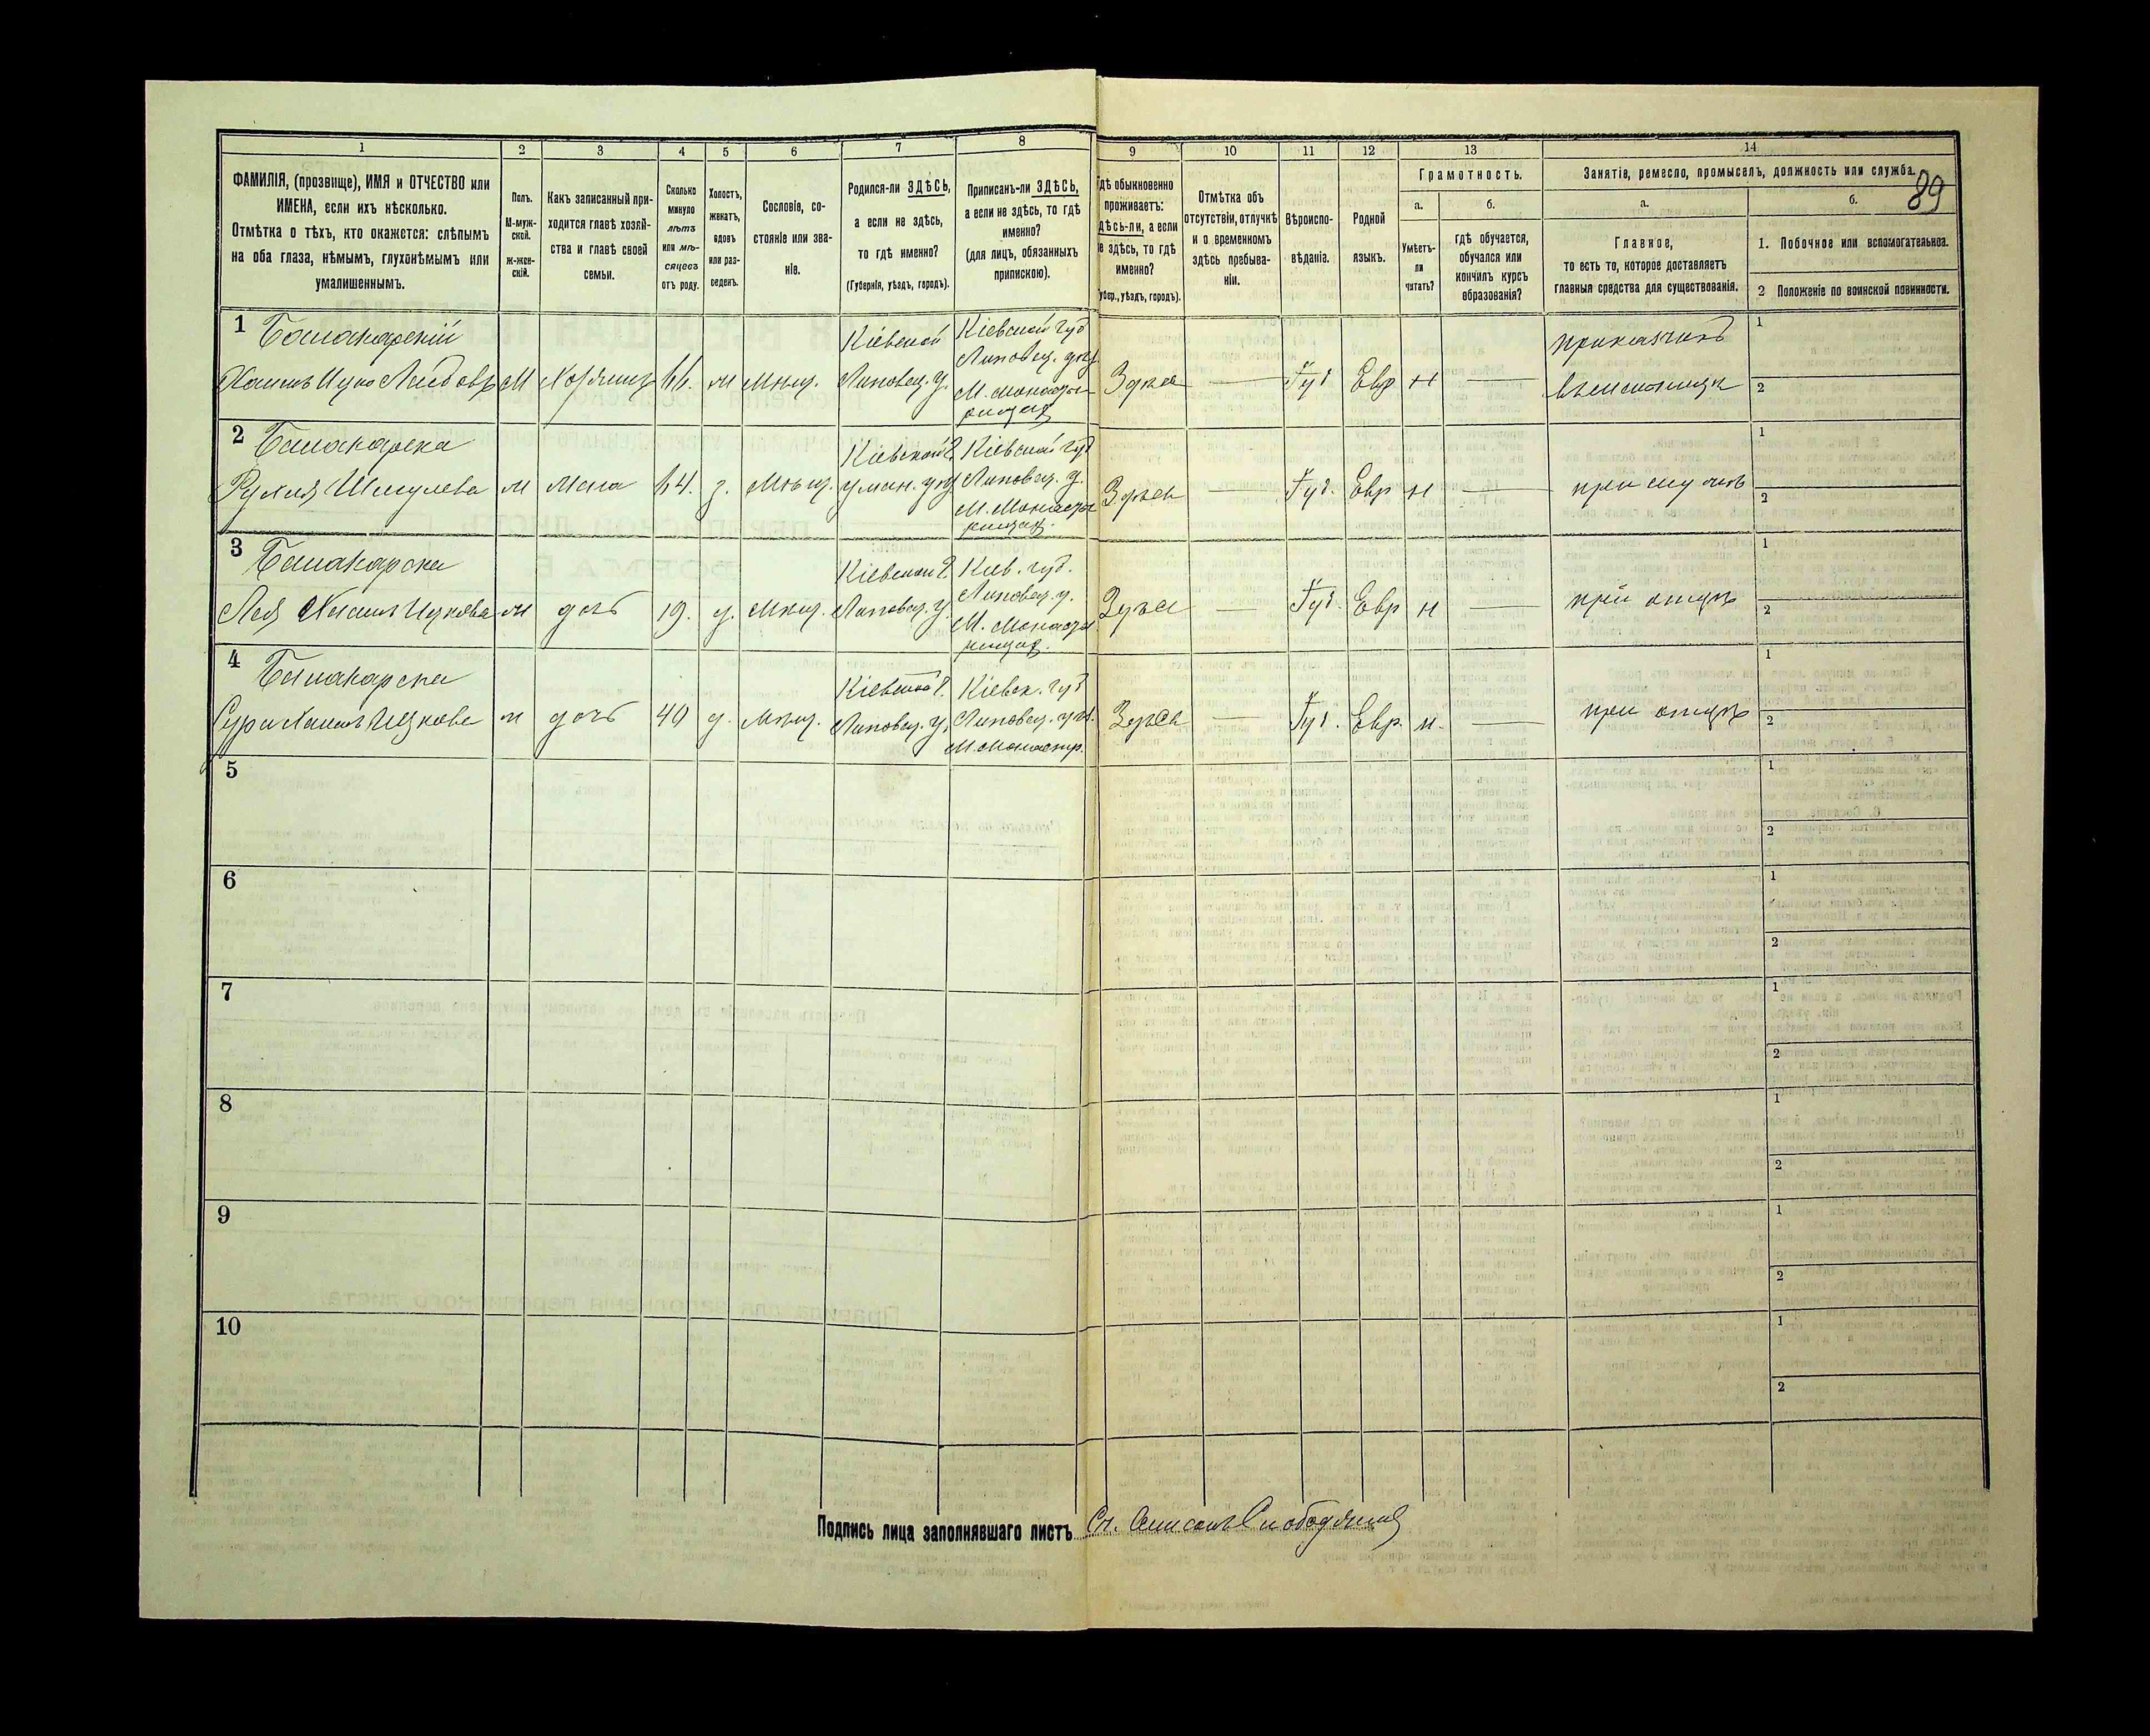 89
1
2
3
4
5
6
7
8
9
10
11
12
13
14
ФАМИЛІЯ, (прозвище), ИМЯ и ОТЧЕСТВО или
ИМЕНА, если ихъ нѣсколько.
Отмѣтка о тѣхъ, кто окажется: слѣпымъ
на оба глаза, нѣмымъ, глухонѣмымъ или
умалишеннымъ.
Полъ.
М-муж-
ской.
ж-жен-
скій.
Какъ записанный при-
ходится главѣ хозяй-
ства и главѣ своей
семьи.
Сколько
минуло
лѣтъ
или мѣ-
сяцевъ
отъ роду.
Холостъ,
женатъ,
вдовъ
или раз-
веденъ.
Сословіе, со-
стояніе или зва-
ніе.
Родился-ли ЗДѢСЬ,
а если не здѣсь,
то гдѣ именно?
(Губернія, уѣздъ, городъ).
Приписанъ-ли ЗДѢСЬ,
а если не здѣсь, то гдѣ
именно?
(для лицъ, обязанныхъ
припискою).
гдѣ обыкновенно
проживаетъ:
здѣсь-ли, а если
не здѣсь, то гдѣ
именно?
(Губер., уѣздъ, городъ).
Отмѣтка объ
отсутствіи, отлучкѣ
и о временномъ
здѣсь пребыва-
ніи.
Вѣроиспо-
вѣданіе.
Родной
языкъ.
Грамотность.
а.
б.
Умѣетъ-
ли
читать?
гдѣ обучается,
обучался или
кончилъ курсъ
образованія?
Занятіе, ремесло, промыселъ, должность или служба.
а.
б.
Главное,
то есть то, которое доставляетъ
главныя средства для существованія.
1. Побочное или вспомогательное.
2 Положеніе по воинской повинности.
1
М
Хозяинъ
66.
Мѣщ.
Кіевской
Липовец. у.
Кіевской губ
Липовец.
М. Монасты-
рищах
Здѣсь
—
Іуд
Евр
н
—
приказчикъ
1
2
2
Рухля Шмулева
жена
64.
з.
Мѣщ.
Кіевской г.
Уман. у.
Кіевской губ
Липовец. у.
М. Монасты
рищах.
Здѣсь
—
Іуд.
Евр
н
—
при мужѣ
1
2
3
Лея
дочь
19.
д.
Мѣщ.
Кіевской г.
Липовец. у.
Кіев. губ.
Липовец. у.
М. Монасты
рищах.
Здѣсь
—
Іуд.
Евр
н
—
при отцѣ
1
2
4
дочь
д.
Мѣщ.
Кіевской г.
Липовец. у.
Кіевск. губ
Липовец. у.
М. Монастр.
Здѣсь
—
Іуд.
Евр.
н.
—
при отцѣ
1
2
5
1
2
6
1
2
7
1
2
8
1
2
9
1
2
10
1
2
Подпись лица заполнявшаго листъ